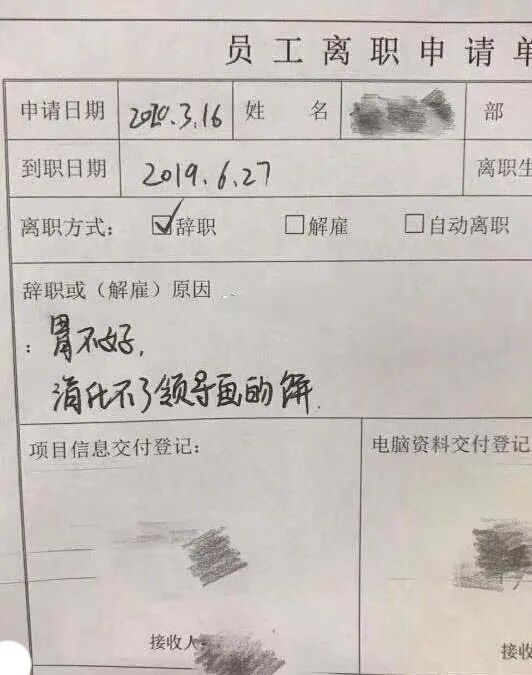 员工离职申请单
申请日期 2020.3.16 姓名 部
到职日期 2019.6.27 离职生
离职方式: ☑辞职 □解雇 □自动离职
辞职或（解雇）原因
: 胃不好,
消化不了领导画的饼.
项目信息交付登记: 电脑资料交付登记
接收人: 接收